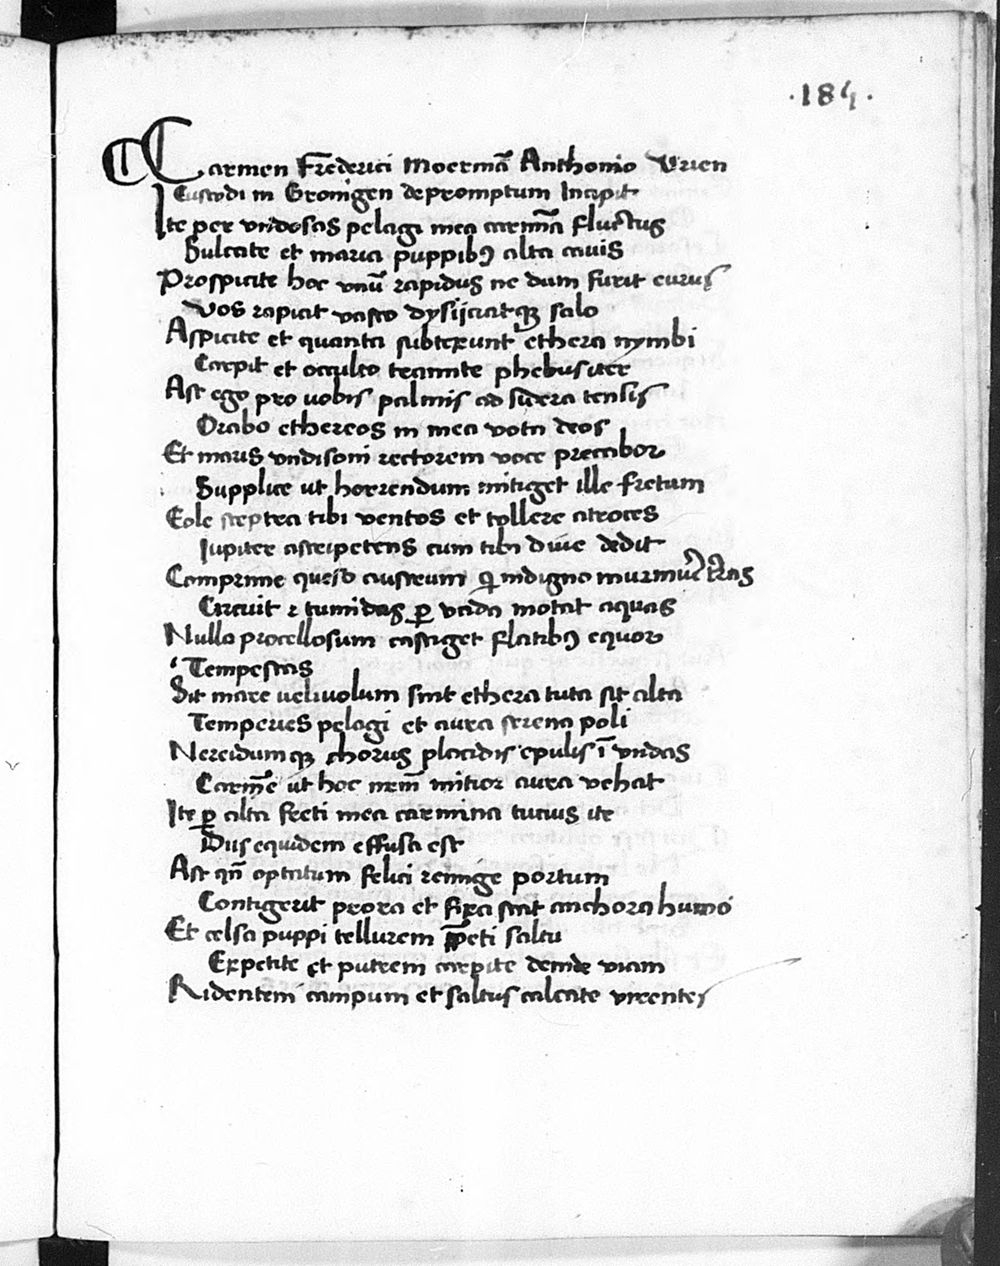 ·184·
Carmen Frederici Moermā Anthonio Vrien
Custodi in Groningen depromptum Incipit
Ite per vndosas pelagi mea carmīa fluctus
Sulcate et maria puppibꝯ alta cauis
Prospicite hoc vnū rapidus ne dum furit eurus
Vos rapiat vasto dysijciatqꝫ salo
Aspicite et quanta subtexunt ethera nymbi
Carpit et occulto tramite phebus iter
Ast ego pro uobis palmis ad sidera tensis
Orabo ethereos in mea vota deos
Et maris vndisoni rectorem voce precabor
Supplice ut horrendum mitiget ille fretum
Eole sceptra tibi ventos et tollere atroces
Jupiter astripetens cum tibi dedit
Comprime queso austrum qͥ indigno murmur̄ trās
Circuit ⁊ tumidas ꝑ vada motat aquas
Nulla procellosum castiget flatibꝯ equor
Tempestas
Sit mare ueliuolum sint ethera tuta sit alta
Temperies pelagi et aura serena poli
Nereidumqꝫ chorus placidis epulis ī vndas
Carmīe ut hoc nrm̄ mitior aura vehat
Ite ꝑ alta freti mea carmina tucius ite
Diis equidem effusa est
Ast qn̄ optatum felici remige portum
Contigerit prora et fixa sint anchora humo
Et celsa puppi tellurem ꝓpeti saltu
Expetite et putrem carpite deinde viam
Ridentem campum et saltus calcate virentes